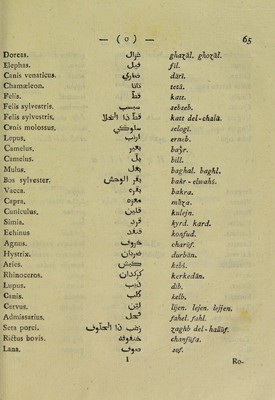 — ( o ) — 65
Dorcas. غزال ghazāl. ghozāl.
Elephas. فيل fīl.
Canis venaticus. ضاري dāri.
Chamæleon. تاتا tetā.
Felis. قط katt.
Felis sylvestris. سبسب sebseb.
Felis sylvestris. قط ذا الخلا katt del-chalā.
Canis molossus. سلوكي selogi.
Lepus. ارنب erneb.
Camelus. بعير baȳr.
Camelus. بل bill.
Mulus. بغل baghal. baghl.
Bos sylvester. بقر الوحش bakr-elwahś.
Vacca. بقرة bakra.
Capra. معزة mâza.
Cuniculus. قلين kulejn.
Simia. قرد kyrd. kard.
Echinus قنفد konfud.
Agnus. خروف charūf.
Hystrix. ضربان durbān.
Aries. كبش kebś.
Rhinoceros. كركدان kerkedān.
Lupus. ديب dib.
Canis. كلب kelb.
Cervus. لين lijen. lejen. lejjen.
Admissarius. فحل fahel. fahl.
Seta porci. زغب ذا الحلوف zaghb del-hallūf.
Rictus bovis. خنفوفة chanfūfa.
Lana. صوف sof.
I Ro-